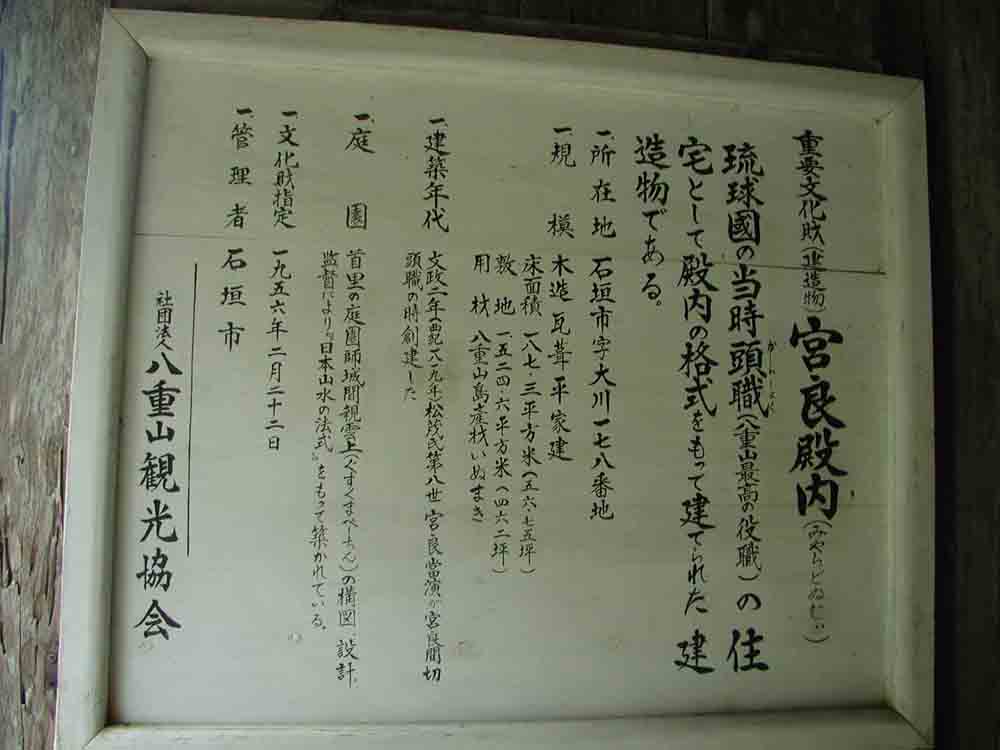 重要文化財(建造物)宮良殿内(みやらどぅぬじぃ)
琉球國の当時頭職(八重山最高の役職)の住
宅として殿内の格式をもって建てられた建
造物である。
一、所在地 石垣市字大川一七八番地
一、規模 木造瓦葺平家建
床面積 一八七・三平方米(五六・七五坪)
敷地 一五二四・六平方米(四六二坪)
用材 八重山島産材いぬまき
一、建築年代 文政二年(西紀一八一九年)松茂氏第八世 宮良當演が宮良間切
頭職の時創建した
一、庭園 首里の庭園師城間親雲上(ぐすくまぺーちん)の構図、設計、
監督により「日本山水の法式」をもって築かれている。
一、文化財指定 一九五六年二月二十二日
一、管理者 石垣市
社団法人八重山観光協会